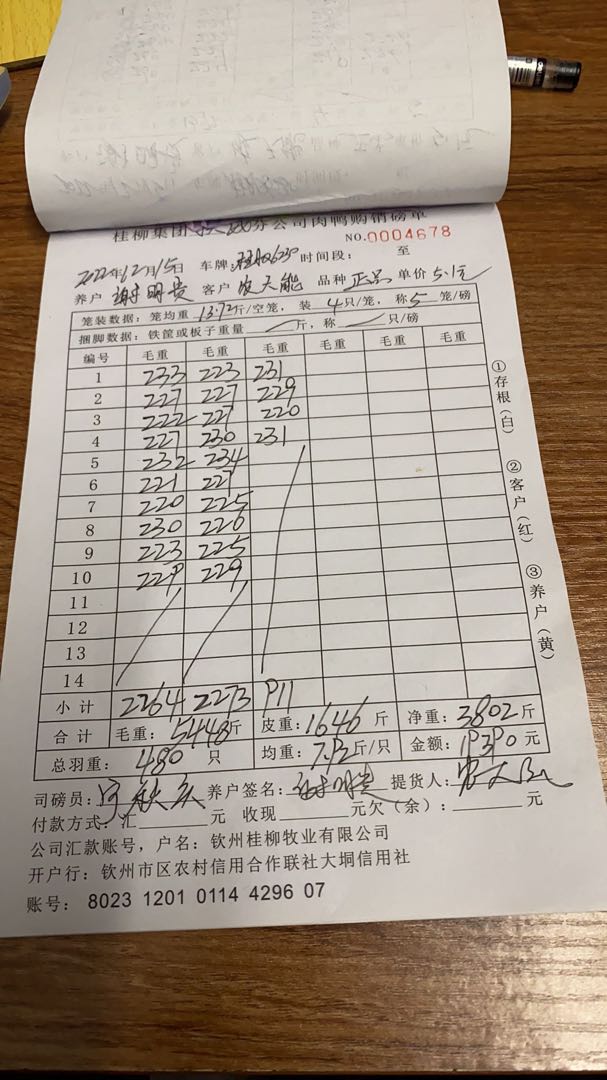 桂柳集团 分公司肉鸭购销磅单
NO.0004678
2022年12月15日 车牌: 时间段: 至
养户 谢明贵 客户 发天能 品种 正品 单价 5.1元
笼装数据:笼均重 13.72斤/空笼,装 4只/笼,称5 笼/磅
捆脚数据:铁筐或板子重量 斤,称 只/磅
编号 毛重 毛重 毛重 毛重 毛重 毛重
1 233 223 231
2 227 227 229
3 222 227 220
4 227 230 231
5 232 234
6 221 227
7 220 225
8 230 226
9 223 225
10 229 229
11
12
13
14
小计 2264 2273 911
合计 毛重:5448斤 皮重:1646 斤 净重:3802斤
总羽重:480 只 均重:7.92斤/只 金额:19390 元
司磅员: 养户签名:谢明贵 提货人:
付款方式:汇 元 收现 元欠(余): 元
公司汇款账号,户名:钦州桂柳牧业有限公司
开户行:钦州市区农村信用合作联社大垌信用社
账号: 8023 1201 0114 4296 07
①存根(白)
②客户(红)
③养户(黄)